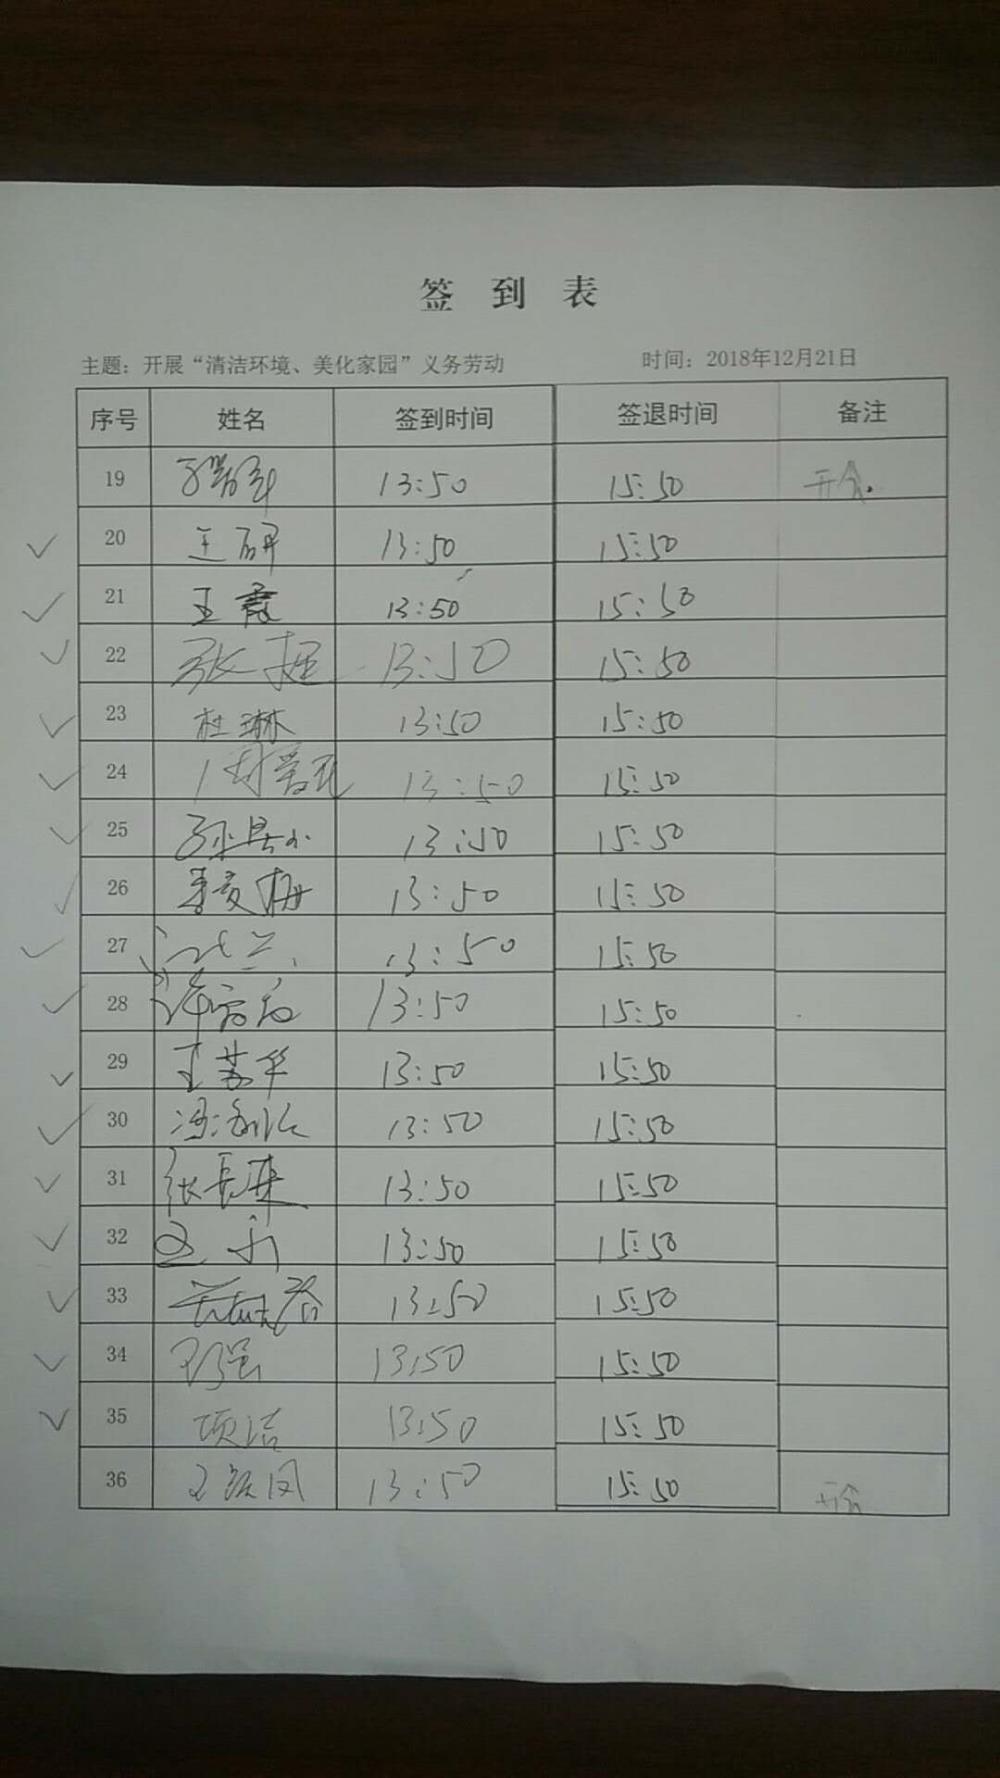 签 到 表
主题：开展“清洁环境、美化家园”义务劳动 时间：2018年12月21日
序号 姓名 签到时间 签退时间 备注
19 13:50 15:50 开会.
20 王研 13:50 15:50
21 王霞 13:50 15:50
22 张挺 13:50 15:50
23 杜琳 13:50 15:50
24 13:50 15:50
25 13:50 15:50
26 李爱梅 13:50 15:50
27 13:50 15:50
28 13:50 15:50
29 王苏华 13:50 15:50
30 13:50 15:50
31 张长建 13:50 15:50
32 13:50 15:50
33 13:50 15:50
34 王强 13:50 15:50
35 项洁 13:50 15:50
36 13:50 15:50 开会